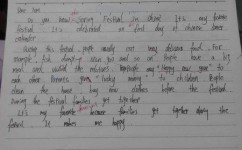 Dear Ben
Do you know Spring Festival in China? It's my favorite
festival. It's celebrated on first day of chinese lunar
calendar.
During this festival people usually eat many delicious food. For
example, fish, dumplings, and so on. People have a big
meal and visit the relatives. People say "Happy new year" to
each other. Parents give "lucky money" to children. People
clean the house, buy new clothes before the festival.
During the festival families get together.
It's my favorite because families get together during the
festival. It makes me happy.